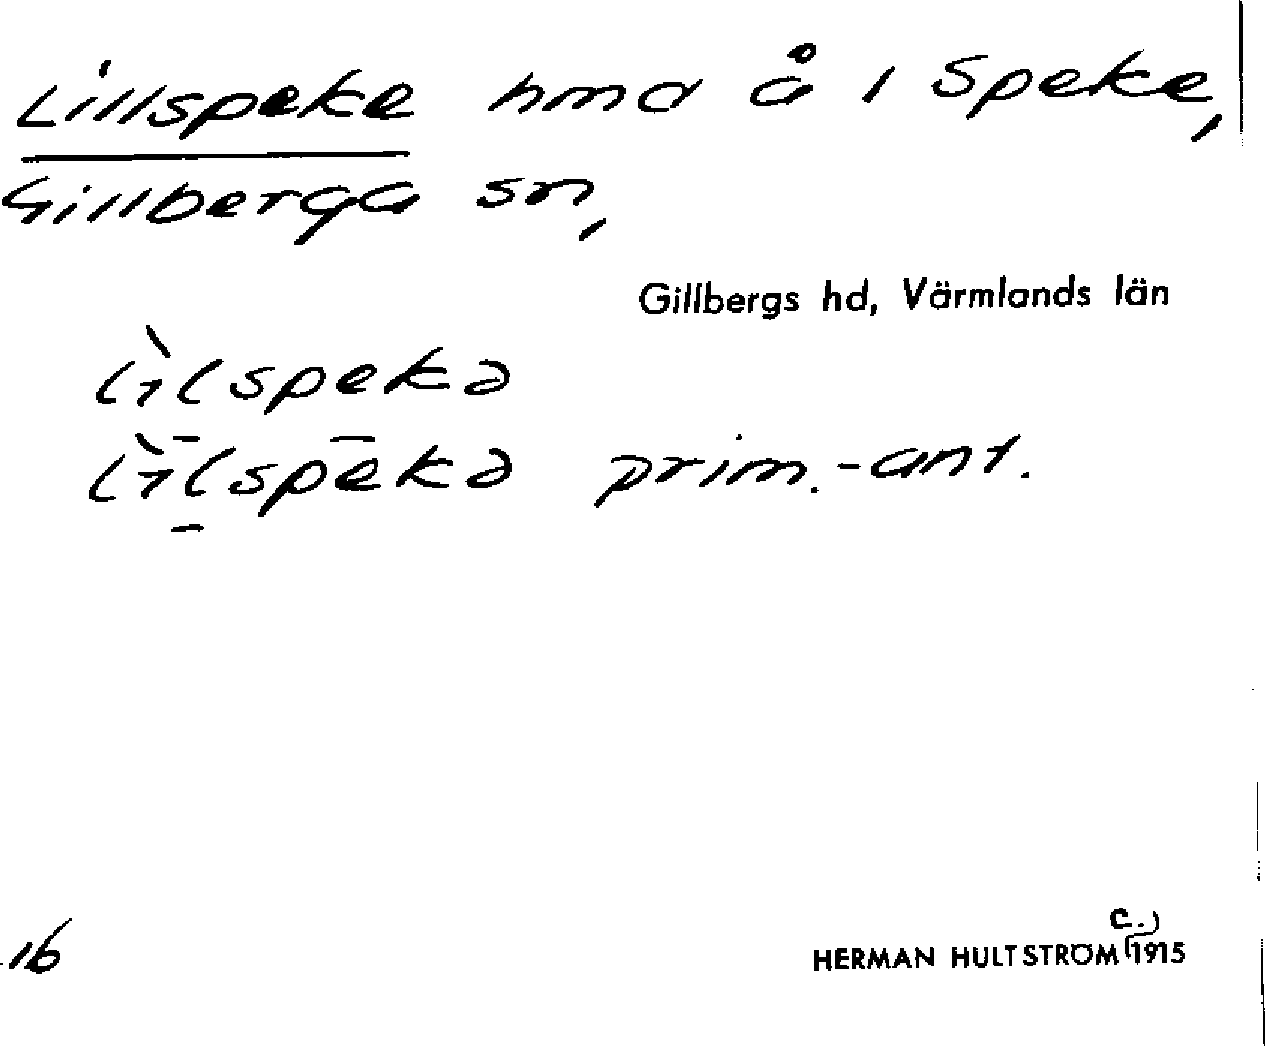 Lillspeke hmd å i Speke,
Gillberga sn,
Gillbergs hd, Värmlands län
lìlspekə
lì̄lspēkə prim.-ant.
16
c.
HERMAN HULTSTRÖM 1915